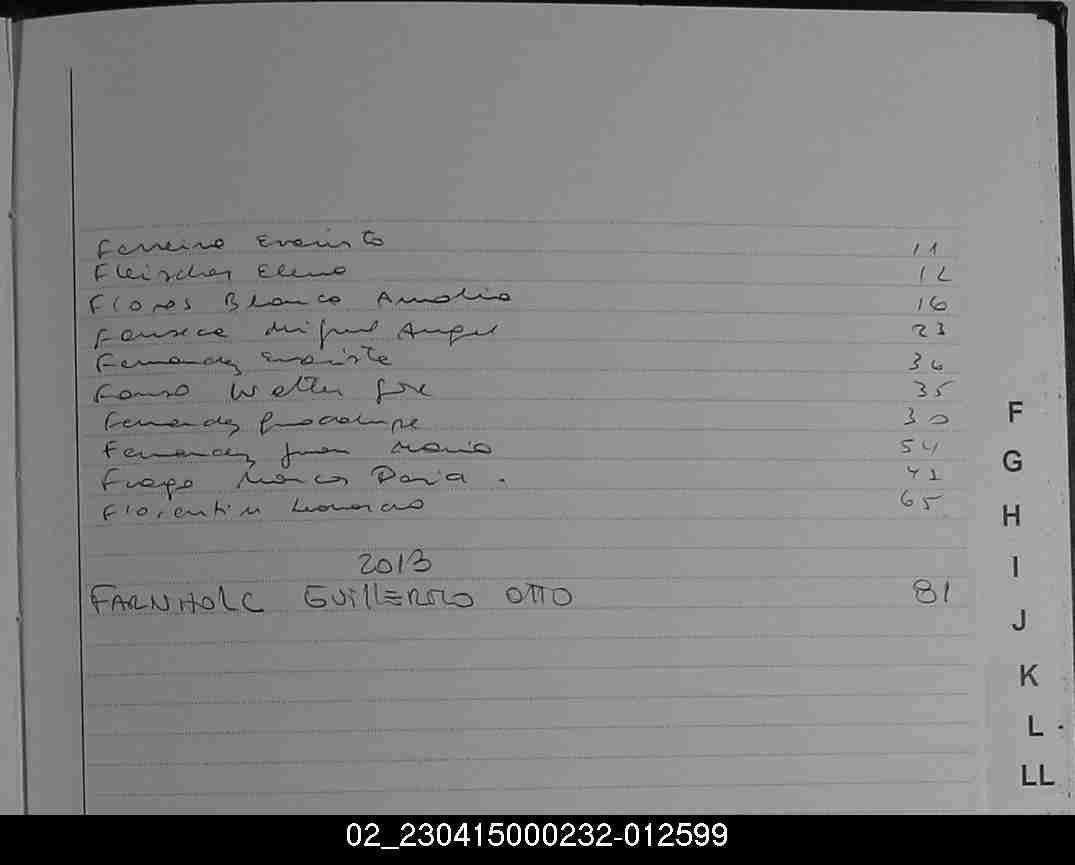 Ferreira Evaristo 11
Fleischer Elena 12
Flores Blanco Amalia 16
Fonseca Miguel Angel 23
Fernandez Evariste 34
Walter Jose 35
Fernandez Guadalupe 30
Fernandez Juan Maria 54
Marcos David. 42
Florentin Leonardo 65
2013
FARNHOLC GUILLERMO OTTO 81
F
G
H
I
J
K
L
LL
02_230415000232-012599